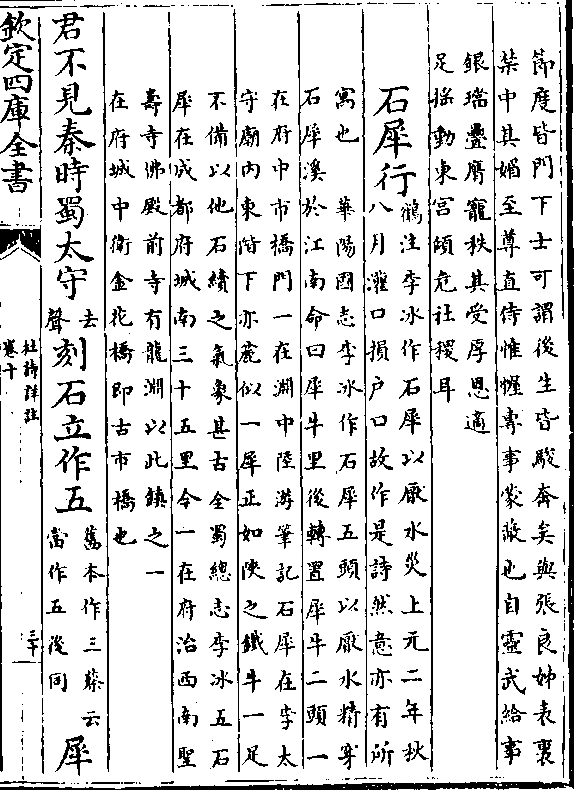 節度皆門下士可謂後生皆駿奔矣與張良娣表裏
禁中其媚至尊直侍帷幄專事蒙蔽也自靈武給事
銀璫疊膺寵秩其受厚恩適
足搖動東宮傾危社稷耳
石犀行
鶴注李冰作石犀以厭水災上元二年秋
八月灌口損戶口故作是詩然意亦有所
寓也 華陽國志李冰作石犀五頭以厭水精穿
石犀溪於江南命曰犀牛里後轉置犀牛二頭一
在府中市橋門一在淵中陸游筆記石犀在李太
守廟內東階下亦麄似一犀正如陝之鐵牛一足
不備以他石續之氣象甚古全蜀總志李冰五石
犀在成都府城南三十五里今一在府治西南聖
壽寺佛殿前寺有龍淵以此鎮之一
在府城中衛金花橋即古市橋也
君不見秦時蜀太守
去
聲
刻石立作五
舊本作三蔡云
當作五後同
犀
杜詩詳註
卷十
三十
欽定四庫全書